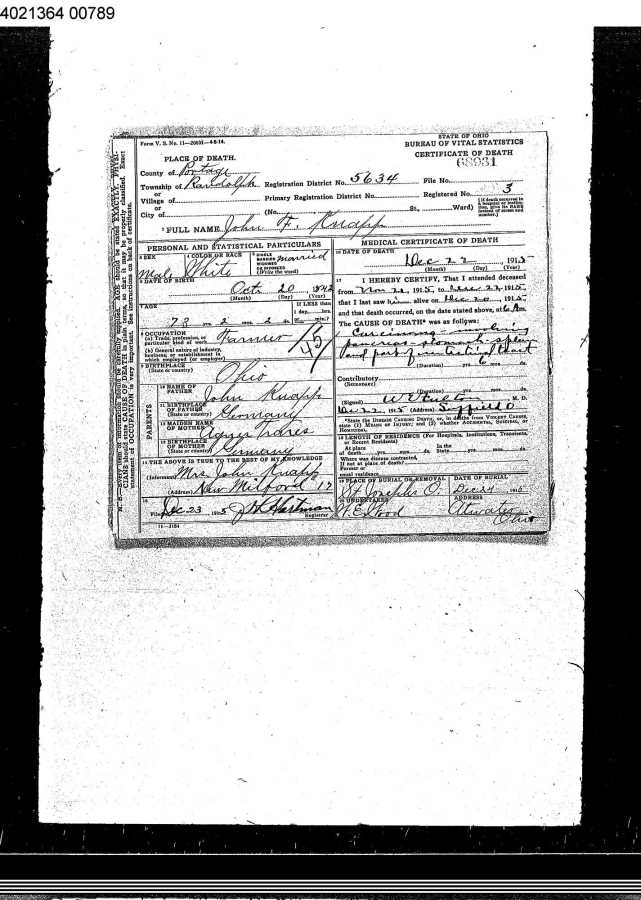 4021364 00789
STATE OF OHIO
BUREAU OF VITAL STATISTICS
CERTIFICATE OF DEATH
Form V. S. No. 11
PLACE OF DEATH.
County of Portage
Township of Randolph Registration District No. 5634 File No.
or
Village of Primary Registration District No. Registered No. 3
or
City of (No. St., Ward)
FULL NAME John F. Knapp
PERSONAL AND STATISTICAL PARTICULARS
3 SEX Male
4 COLOR OR RACE White
5 SINGLE MARRIED WIDOWED OR DIVORCED (Write the word) Married
6 DATE OF BIRTH
Oct 20, 1842
(Month) (Day) (Year)
7 AGE
73 yrs. 2 mos. 2 ds.
IF LESS than
1 day, hrs.
or min.?
8 OCCUPATION
(a) Trade, profession, or
particular kind of work Farmer
(b) General nature of industry,
business, or establishment in
which employed (or employer)
9 BIRTHPLACE
(State or country) Ohio
PARENTS
10 NAME OF
FATHER John Knapp
11 BIRTHPLACE
OF FATHER
(State or country) Germany
12 MAIDEN NAME
OF MOTHER
13 BIRTHPLACE
OF MOTHER
(State or country) Germany
14 THE ABOVE IS TRUE TO THE BEST OF MY KNOWLEDGE
(Informant) Mrs. John Knapp
(Address) New Milford O
15
Filed Dec 23 1915 Hartman
Registrar
11-3184
MEDICAL CERTIFICATE OF DEATH
16 DATE OF DEATH
Dec 22, 1915
(Month) (Day) (Year)
17 I HEREBY CERTIFY, That I attended deceased
from Nov 21, 1915, to Dec 22, 1915,
that I last saw him alive on Dec 20, 1915,
and that death occurred, on the date stated above, at 6 A m.
The CAUSE OF DEATH* was as follows:
Carcinoma involving
pancreas stomach spleen
and part of intestinal tract
(Duration) yrs. 6 mos. ds.
Contributory
(Secondary)
(Duration) yrs. mos. ds.
(Signed) Fulton M. D.
Dec 22 1915 (Address) Suffield O
*State the DISEASE CAUSING DEATH, or, in deaths from VIOLENT CAUSES,
state (1) MEANS OF INJURY; and (2) whether ACCIDENTAL, SUICIDAL, or
HOMICIDAL.
18 LENGTH OF RESIDENCE (For Hospitals, Institutions, Transients,
or Recent Residents)
At place In the
of death yrs. mos. ds. State yrs. mos. ds.
Where was disease contracted,
If not at place of death?
Former or
usual residence
19 PLACE OF BURIAL OR REMOVAL DATE OF BURIAL
St Josephs O. Dec 24 1915
20 UNDERTAKER ADDRESS
Wood Atwater
Ohio